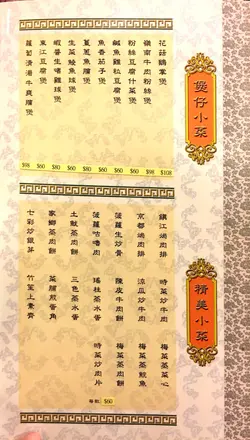 煲仔小菜
花菇鵝掌煲 $108
嶺南牛肉粉絲煲 $98
粉絲豆腐什菜煲 $60
鹹魚雞粒豆腐煲 $60
魚香茄子煲 $60
薑蔥魚腩煲 $80
生菜鯪魚球煲 $60
蝦醬生啫雞煲 $80
東江豆腐煲 $60
蘿蔔清湯牛爽腩煲 $98
精美小菜
鎮江焗肉排
京都焗肉排
菠蘿生炒骨
菠蘿咕嚕肉
土魷蒸肉餅
家鄉蒸肉餅
七彩炒銀芽
時菜炒牛肉
涼瓜炒牛肉
陳皮牛肉餅
瑤柱蒸水蛋
三色蒸水蛋
菜脯煎蛋角
竹笙上素齋
梅菜蒸菜心
梅菜蒸鯇魚
梅菜蒸肉餅
時菜炒肉片
每款 $60